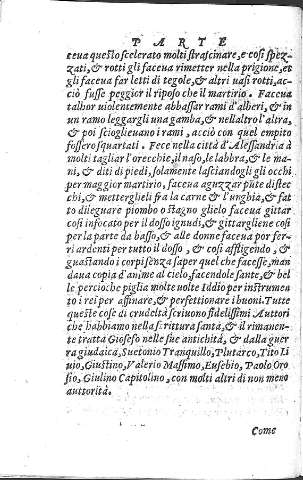 PARTE
ceua questo scelerato molti strascinare, e cosi spez-
zati, & rotti gli faceua rimetter nella prigione, et
gli faceua far letti di tegole, & altri uasi rotti, ac-
ciò fusse peggior il riposo che il martirio. Faceua
talhor uiolentemente abbassar rami d'alberi, & in
un ramo leggargli una gamba, & nell'altro l'altra,
& poi scioglieuano i rami, acciò con quel empito
fossero squartati. Fece nella città d'Alessandria à
molti tagliar l'orecchie, il naso, le labbra, & le ma-
ni, & diti di piedi, solamente lasciandogli gli occhi
per maggior martirio, faceua aguzzar pūte di stec
chi, & mettergliele frà la carne & l'unghia, & fat
to dileguare piombo o stagno glielo faceua gittar
cosi infocato per il dosso ignudi, & gittargliene cosi
per la parte da basso, & alle donne faceua por fer-
ri ardenti per tutto il dosso, & cosi affligendo, &
guastando i corpi senza saper quel che facesse, man
daua copia d'anime al cielo, facendole sante, & bel
le percioche piglia molte uolte Iddio per instrumen
to i rei per affinare, & perfettionare i buoni. Tutte
queste cose di crudeltà scriuono fidelissimi Auttori
che habbiamo nella scrittura santa, & il rimanen-
te tratta Gioseso nelle sue antichità, & dalla guer
ra giudaica, Suetonio Tranquillo, Plutarco, Tito Li
uio, Giustino, Valerio Massimo, Eusebio, Paolo Oro
sio, Giulino Capitolino, con molti altri di non meno
auttorità.
Come